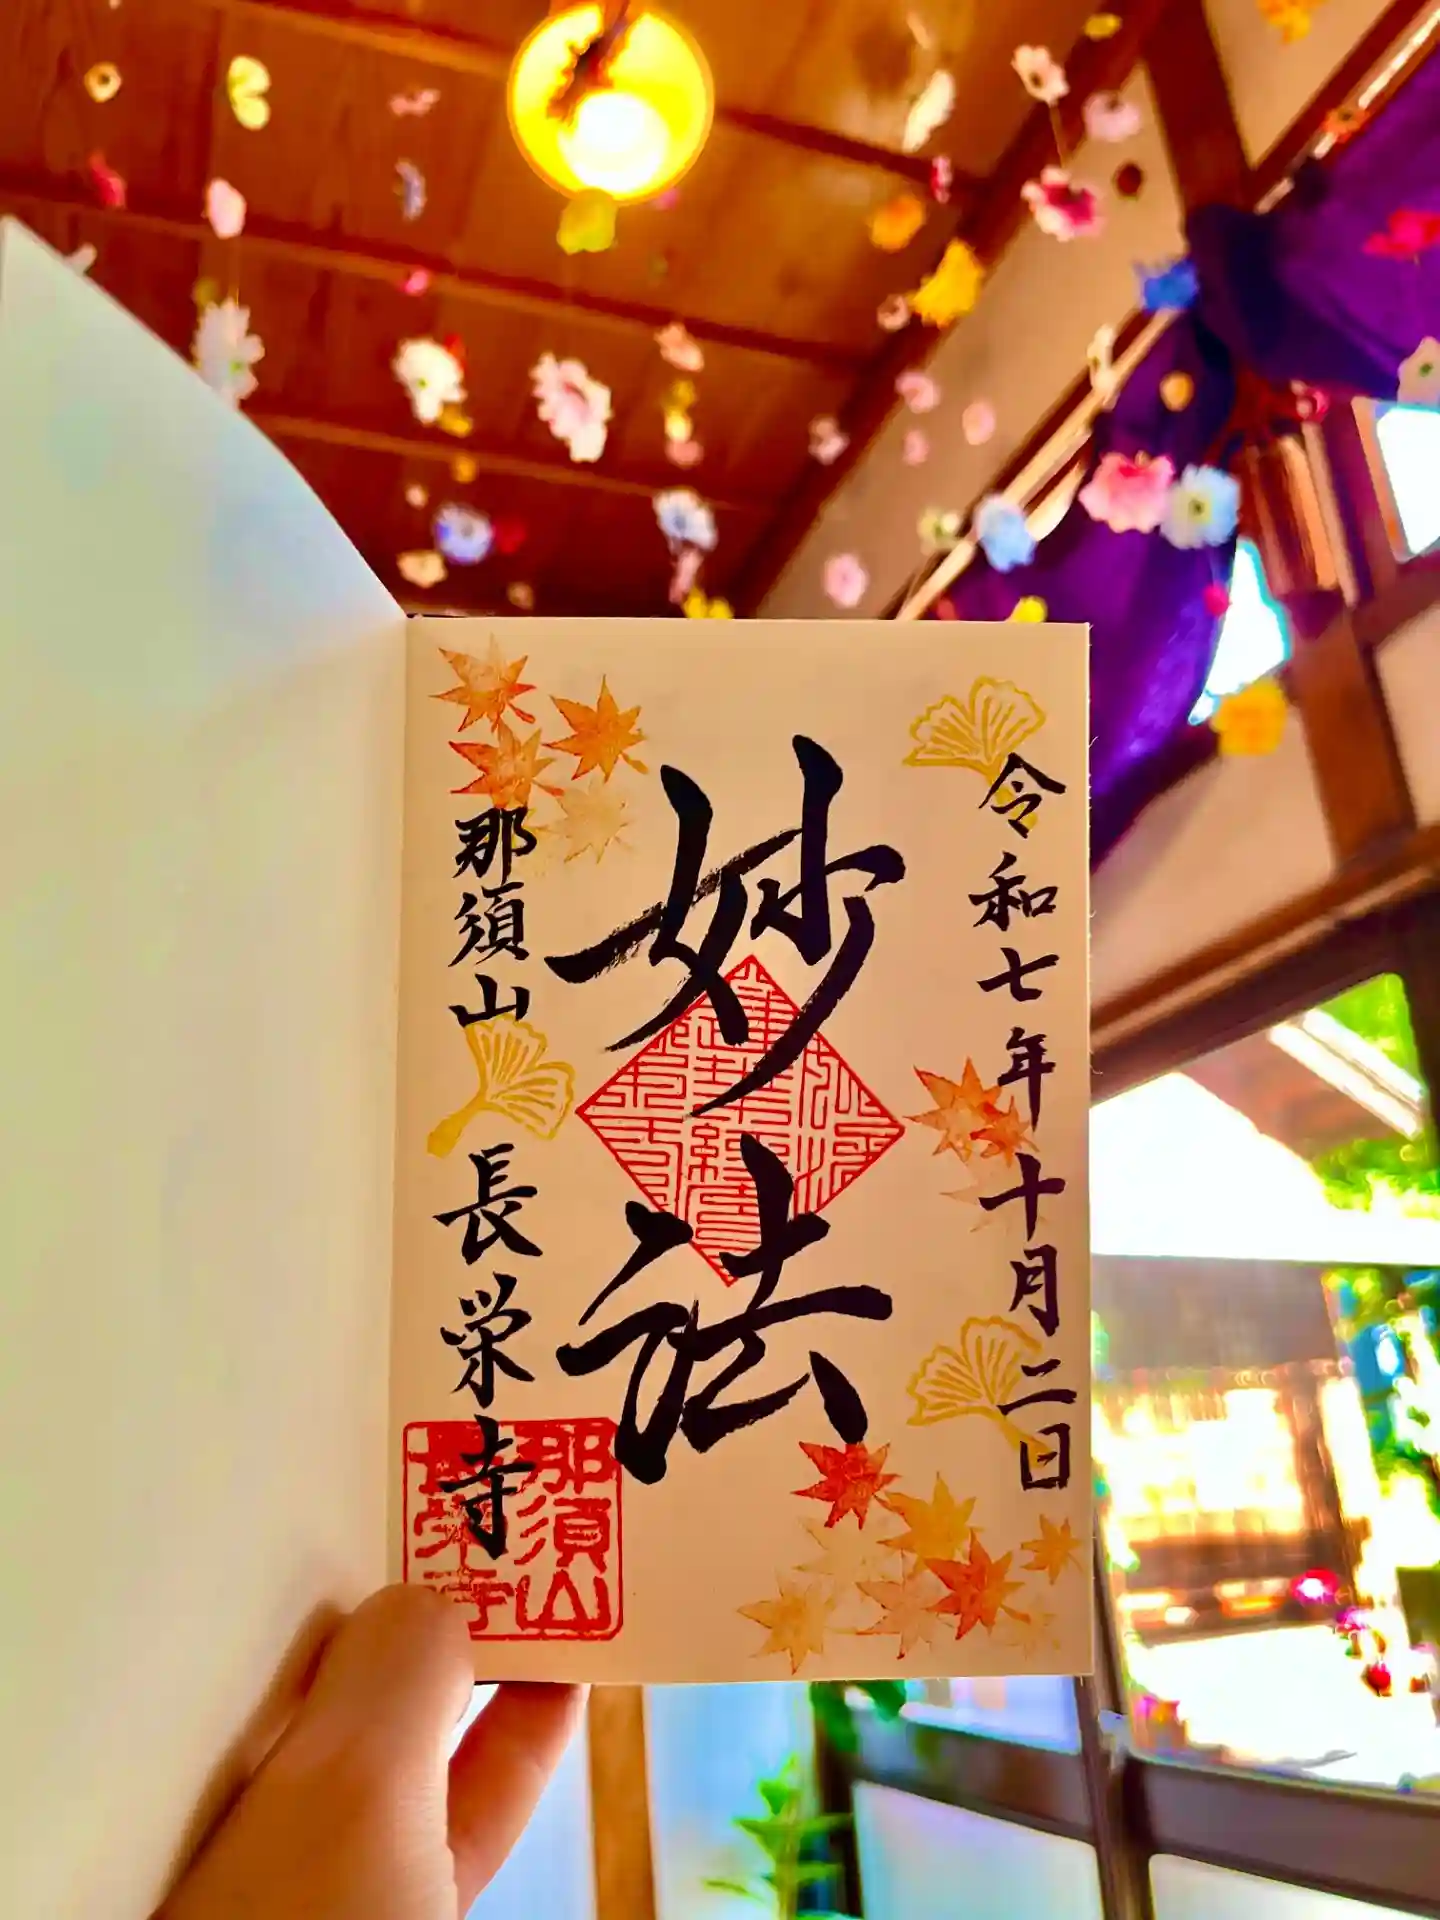 令和七年十月二日
妙法
那須山 長栄寺
那須山
長栄寺